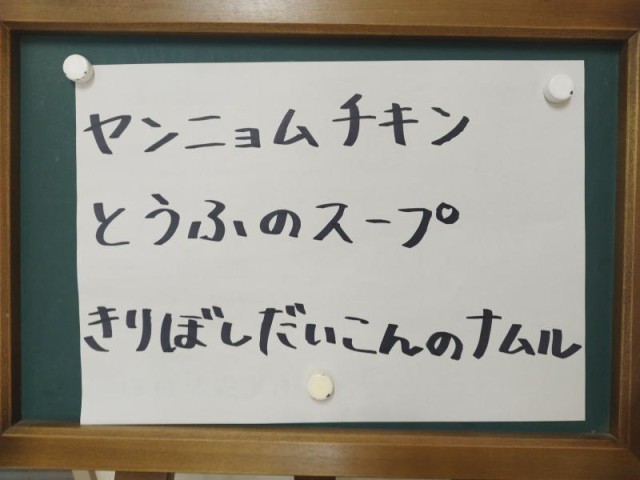 ヤンニョムチキン
とうふのスープ
きりぼしだいこんのナムル